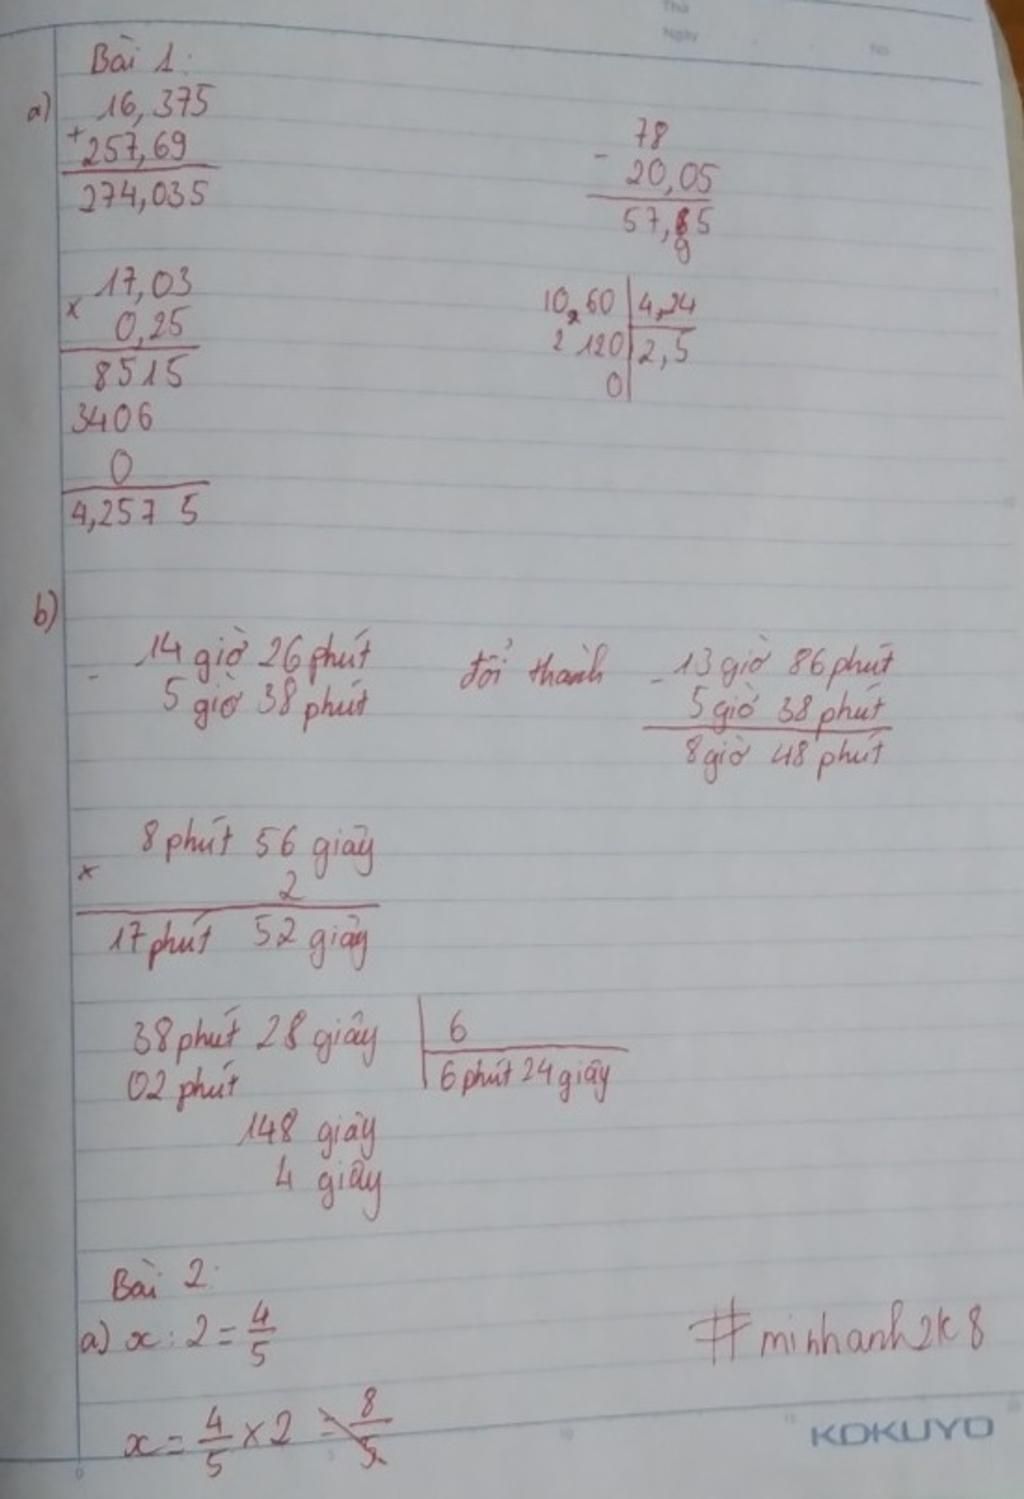 Thứ
Ngày
No
Bài 1:
a) 16,375
+ 257,69
274,035
78
- 20,05
57,85
9
17,03
x 0,25
8515
3406
0
4,2575
10,60 | 4,24
2 120 | 2,5
0
b)
- 14 giờ 26 phút
5 giờ 38 phút
đổi thành
- 13 giờ 86 phút
5 giờ 38 phút
8 giờ 48 phút
8 phút 56 giây
x 2
17 phút 52 giây
38 phút 28 giây | 6
02 phút | 6 phút 24 giây
148 giây
4 giây
Bài 2:
a) x : 2 = 4/5
x = 4/5 × 2 = 8/5
#minhanh2k8
KOKUYO